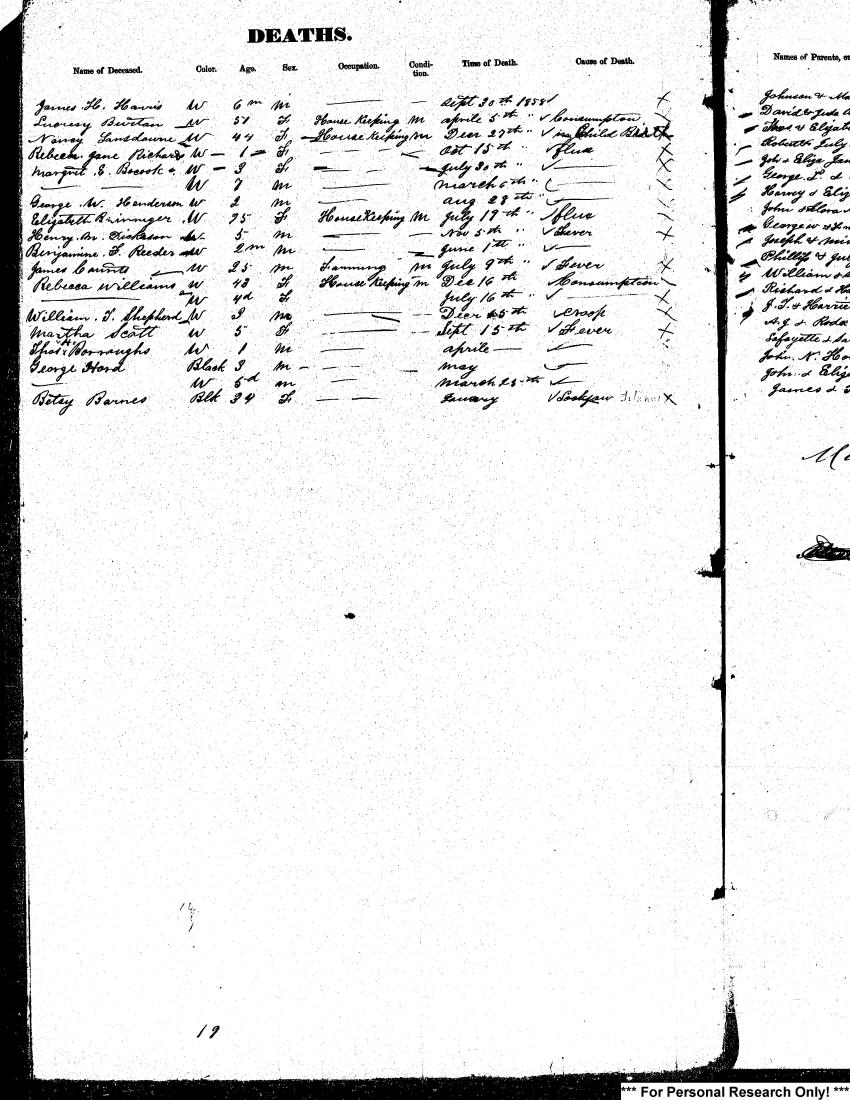 DEATHS.
Name of Deceased. Color. Age. Sex. Occupation. Condi-tion. Time of Death. Cause of Death.
James H. Harris W 6m M Sept 30th 1858
Burtan W 51 F House Keeping M aprile 5th " Consumption
Nancy Lansdowne W 44 F House Keeping M Decr 27th " in Child Birth
Rebecca Jane Richards W 1 F Oct 15th flux
Margret E. Bocook W 3 F July 30th "
W 7 M March 6th "
George W. Henderson W 2 M aug 28th "
Elizabeth W F House Keeping M July 19th flux
Henry M. Dickason W 5 M Nov 5th " Fever
Benjamine F. Reeder W 2m M June 1th "
James Counts W 25 M Farming M July 9th " Fever
Rebecca Williams W 43 F House Keeping M Dec 16th Consumption
W 4d F July 16th "
William T. Shepherd W 3 M Decr croop
Martha Scott W 5 F Sept 15th Fever
Thos H Borroughs W 1 M aprile
George Hord Black 3 M may
W 5d M March 25th
Betsy Barnes Blk 34 F January Lockjaw
19
Names of Parents, or
Johnson & Ma
David &
Thos. & Elizab
Robert & July
Joh & Eliza Jan
George T. &
Harvey & Eliz
John & Flora
George W &
Joseph &
Phillip & Ju
William &
Richard & Ha
J. T. & Harrie
A. J. & Roda
Lafayette & Sa
John N. Ho
John & Eliz
James &
*** For Personal Research Only! ***